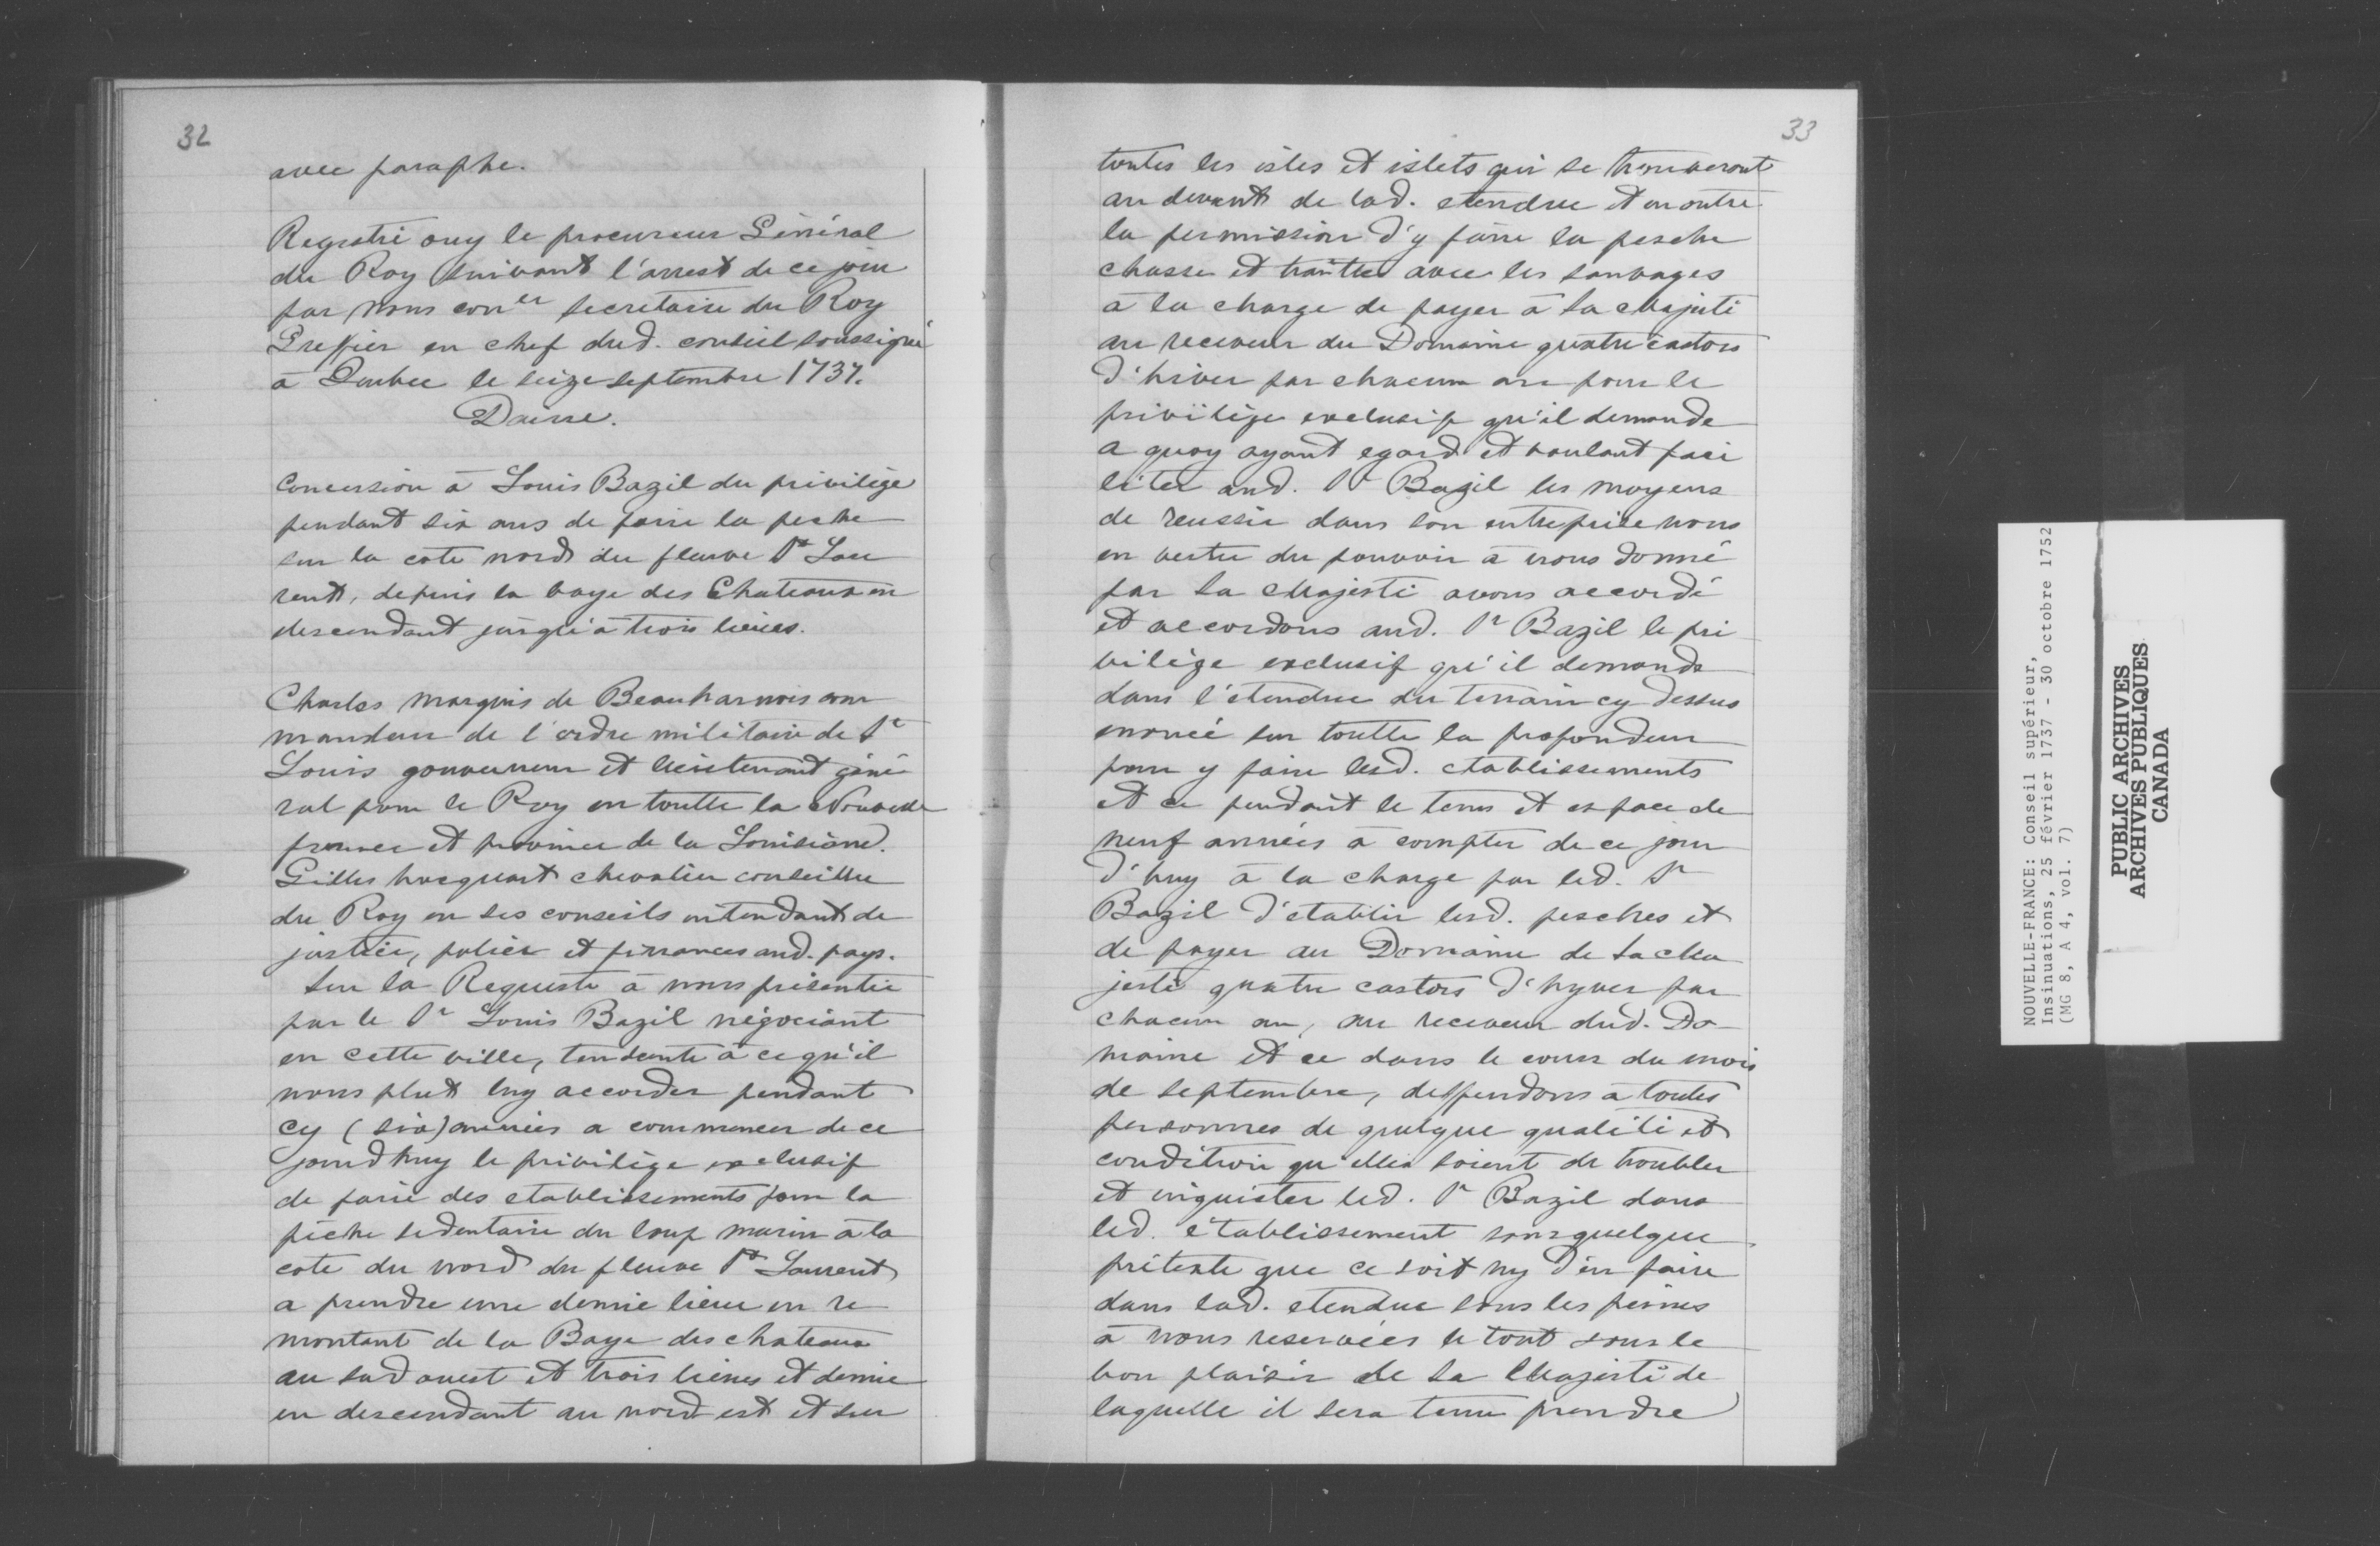 32
avec paraphe.
Registré ouy le procureur Général
du Roy suivant l'arrest de ce jour
par nous con.er secretaire du Roy
Greffier en chef dud. conseil soussigné
à Quebec le seize septembre 1737.
Daine.
Concession à Louis Bazil du privilège
pendant six ans de faire la peche
sur la cote nord du fleuve St Lau
rent, depuis la baye des Chateaux en
descendant jusqu'à trois lieues.
Charles Marquis de Beauharnois com
mandeur de l'ordre militaire de St
Louis gouverneur et lieutenant géné
ral pour le Roy en toutte la Nouvelle
france et province de la Louisiane.
Gilles hocquart chevalier conseiller
du Roy en ses conseils intendant de
justice, police et finances aud. pays.
Sur la Requeste à nous présentée
par le Sr Louis Bazil négociant
en cette ville, tendante à ce qu'il
nous plut luy accorder pendant
cy (six) années a commencer de ce
jourdhuy le privilège exclusif
de faire des etablissements pour la
pèche sedentaire du loup marin à la
cote du nord du fleuve St Laurent
a prendre une demie lieue en re
montant de la Baye des chateaux
au sud ouest et trois lieues et demie
en descendant au nord est et sur
33
toutes les isles et islets qui se trouveront
au devant de lad. etendue et en outre
la permission d'y faire la pesche
chasse et traitte avec les sauvages
à la charge de payer à Sa Majesté
au receveur du Domaine quatre castors
d'hiver par chacun an pour le
privilège exclusif qu'il demande
a quoy ayant egard et voulant faci
liter aud. Sr Bazil les moyens
de reussir dans son entreprise nous
en vertu du pouvoir à nous donné
par Sa Majesté avons accordé
et accordons aud. Sr Bazil le pri
vilège exclusif qu'il demande
dans l'étendue du terrain cy dessus
enoncé sur toutte la profondeur
pour y faire lesd. etablissements
et ce pendant le tems et espace de
neuf années à compter de ce jour
d'huy à la charge par led. Sr
Bazil d'etablir lesd. pesches et
de payer au Domaine de Sa Ma
jesté quatre castors d'hyver par
chacun an, au receveur dud. Do-
maine et ce dans le cours du mois
de septembre, deffendons à toutes
personnes de quelque qualité et
condition qu'elles soient de troubler
et inquieter led. Sr Bazil dans
led. établissement sous quelque
prétexte que ce soit ny d'en faire
dans lad. etendue sous les peines
à nous reservées le tout sous le
bon plaisir de Sa Majesté de
laquelle il sera tenu prendre
NOUVELLE-FRANCE: Conseil supérieur,
Insinuations, 25 février 1737 - 30 octobre 1752
(MG 8, A 4, vol. 7)
PUBLIC ARCHIVES
ARCHIVES PUBLIQUES
CANADA